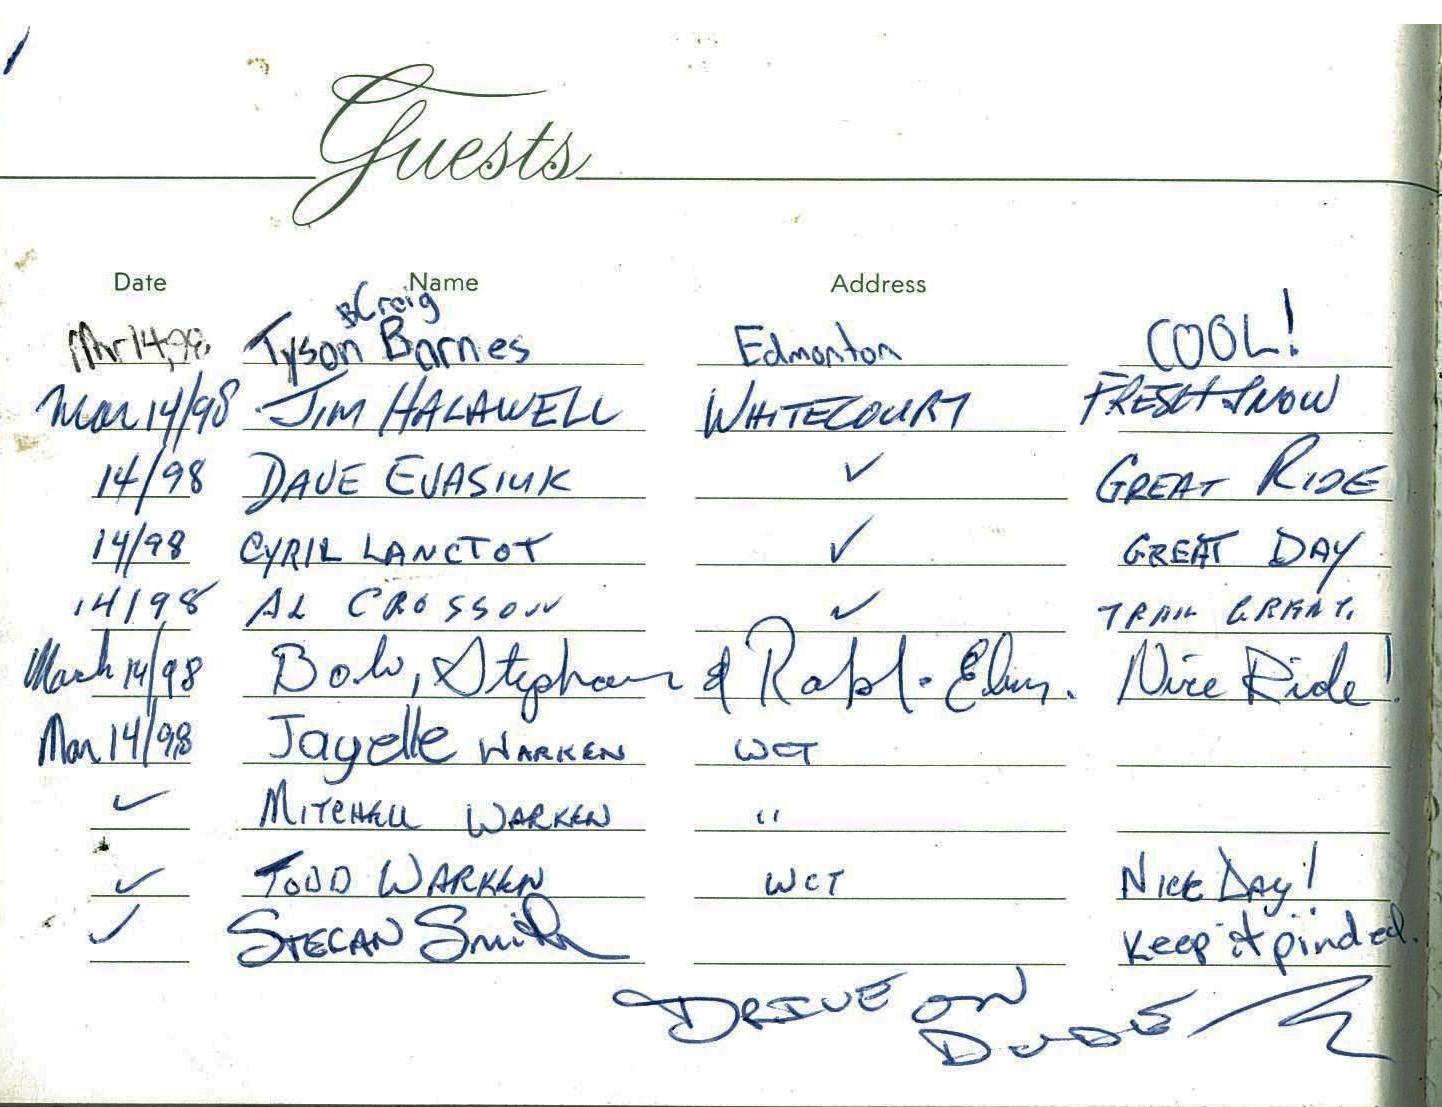 Guests
Date Name Address
& Craig
Mar 14, 98 Tyson Barnes Edmonton COOL!
Mar 14/98 JIM HALAWELL WHITECOURT FRESH SNOW
14/98 DAVE EVASIUK ✓ GREAT RIDE
14/98 CYRIL LANCTOT ✓ GREAT DAY
14/98 AL CROSSOW ✓ TRAIL GREAT.
March 14/98 Bob, Stephan & Nice Ride!
Mar 14/98 Jayelle WARKEN WCT
✓ MITCHELL WARKEN "
✓ TODD WARKEN WCT NICE DAY!
✓ STEFAN Smith Keep it pinded.
DRIVE ON
DUDE